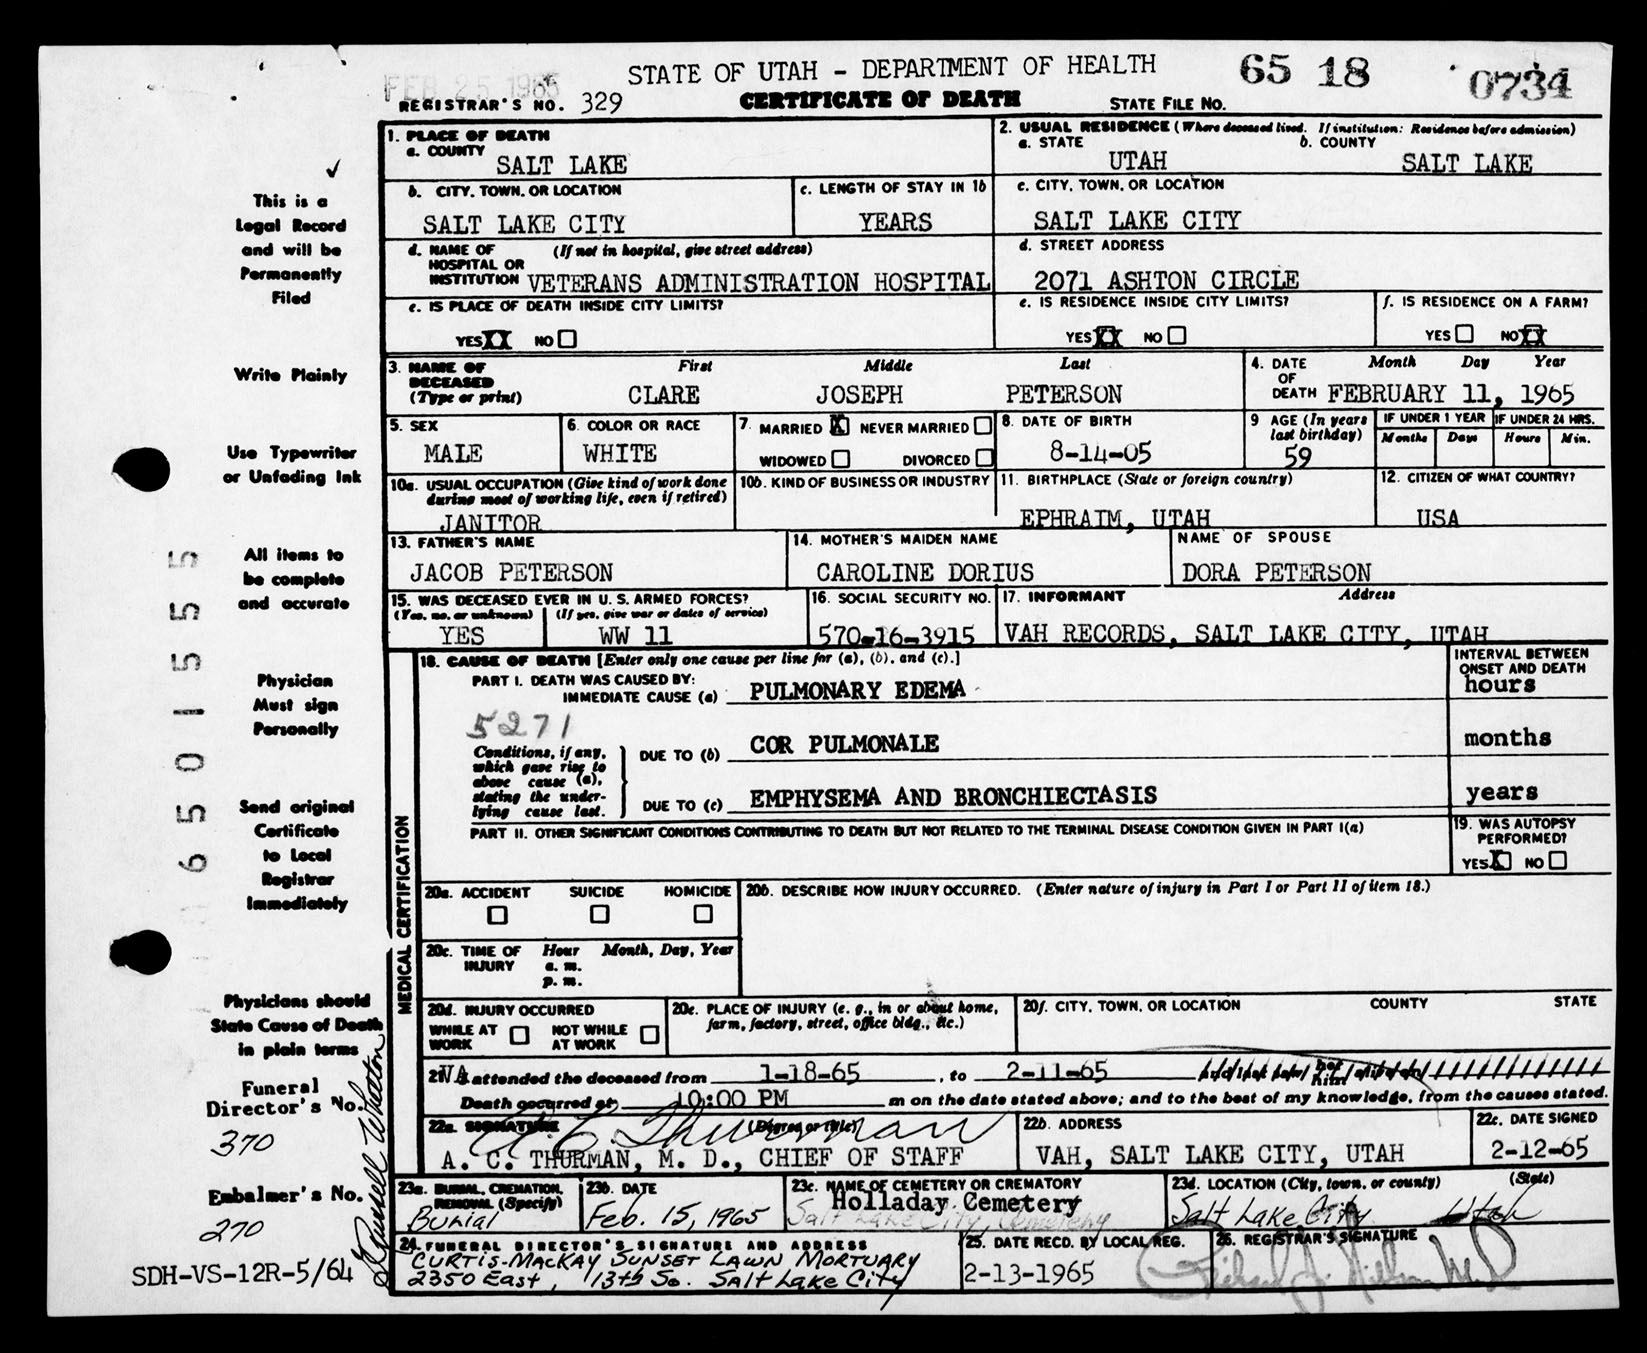 FEB 25 1965
STATE OF UTAH - DEPARTMENT OF HEALTH
65 18 0734
REGISTRAR'S NO. 329
CERTIFICATE OF DEATH
STATE FILE NO.
This is a
Legal Record
and will be
Permanently
Filed
Write Plainly
Use Typewriter
or Unfading Ink
All items to
be complete
and accurate
Physician
Must sign
Personally
Send original
Certificate
to Local
Registrar
Immediately
Physicians should
State Cause of Death
in plain terms
Funeral
Director's No.
370
Embalmer's No.
270
SDH-VS-12R-5/64
650155555
1. PLACE OF DEATH
a. COUNTY
SALT LAKE
2. USUAL RESIDENCE (Where deceased lived. If institution: Residence before admission)
a. STATE b. COUNTY
UTAH SALT LAKE
b. CITY, TOWN, OR LOCATION
SALT LAKE CITY
c. LENGTH OF STAY IN 1b
YEARS
c. CITY, TOWN, OR LOCATION
SALT LAKE CITY
d. NAME OF (If not in hospital, give street address)
HOSPITAL OR
INSTITUTION VETERANS ADMINISTRATION HOSPITAL
d. STREET ADDRESS
2071 ASHTON CIRCLE
e. IS PLACE OF DEATH INSIDE CITY LIMITS?
YES XX NO
e. IS RESIDENCE INSIDE CITY LIMITS?
YES XX NO
f. IS RESIDENCE ON A FARM?
YES NO XX
3. NAME OF First Middle Last
DECEASED
(Type or print) CLARE JOSEPH PETERSON
4. DATE Month Day Year
OF
DEATH FEBRUARY 11, 1965
5. SEX
MALE
6. COLOR OR RACE
WHITE
7. MARRIED X NEVER MARRIED
WIDOWED DIVORCED
8. DATE OF BIRTH
8-14-05
9 AGE (In years
last birthday)
59
IF UNDER 1 YEAR IF UNDER 24 HRS.
Months Days Hours Min.
10a. USUAL OCCUPATION (Give kind of work done
during most of working life, even if retired)
JANITOR
10b. KIND OF BUSINESS OR INDUSTRY
11. BIRTHPLACE (State or foreign country)
EPHRAIM, UTAH
12. CITIZEN OF WHAT COUNTRY?
USA
13. FATHER'S NAME
JACOB PETERSON
14. MOTHER'S MAIDEN NAME
CAROLINE DORIUS
NAME OF SPOUSE
DORA PETERSON
15. WAS DECEASED EVER IN U. S. ARMED FORCES?
(Yes, no, or unknown) (If yes, give war or dates of service)
YES WW 11
16. SOCIAL SECURITY NO.
570-16-3915
17. INFORMANT Address
VAH RECORDS, SALT LAKE CITY, UTAH
MEDICAL CERTIFICATION
18. CAUSE OF DEATH [Enter only one cause per line for (a), (b), and (c).]
INTERVAL BETWEEN
ONSET AND DEATH
PART I. DEATH WAS CAUSED BY:
IMMEDIATE CAUSE (a) PULMONARY EDEMA hours
5271
Conditions, if any,
which gave rise to
above cause (a),
stating the under-
lying cause last.
DUE TO (b) COR PULMONALE months
DUE TO (c) EMPHYSEMA AND BRONCHIECTASIS years
PART II. OTHER SIGNIFICANT CONDITIONS CONTRIBUTING TO DEATH BUT NOT RELATED TO THE TERMINAL DISEASE CONDITION GIVEN IN PART I(a)
19. WAS AUTOPSY
PERFORMED?
YES X NO
20a. ACCIDENT SUICIDE HOMICIDE
20b. DESCRIBE HOW INJURY OCCURRED. (Enter nature of injury in Part I or Part II of item 18.)
20c. TIME OF Hour Month, Day, Year
INJURY a. m.
p. m.
20d. INJURY OCCURRED
WHILE AT NOT WHILE
WORK AT WORK
20e. PLACE OF INJURY (e. g., in or about home,
farm, factory, street, office bldg., etc.)
20f. CITY, TOWN, OR LOCATION COUNTY STATE
21. VA attended the deceased from 1-18-65, to 2-11-65
Death occurred at 10:00 PM m on the date stated above; and to the best of my knowledge, from the causes stated.
22a. SIGNATURE (Degree or title)
A. C. Thurman
A. C. THURMAN, M. D., CHIEF OF STAFF
22b. ADDRESS
VAH, SALT LAKE CITY, UTAH
22c. DATE SIGNED
2-12-65
23a. BURIAL, CREMATION,
REMOVAL (Specify)
Burial
23b. DATE
Feb. 15, 1965
23c. NAME OF CEMETERY OR CREMATORY
Holladay Cemetery
Salt Lake City Cemetery
23d. LOCATION (City, town, or county) (State)
Salt Lake City Utah
24. FUNERAL DIRECTOR'S SIGNATURE AND ADDRESS
CURTIS-MACKAY SUNSET LAWN MORTUARY
2350 East, 13th So. Salt Lake City
25. DATE RECD. BY LOCAL REG.
2-13-1965
26. REGISTRAR'S SIGNATURE